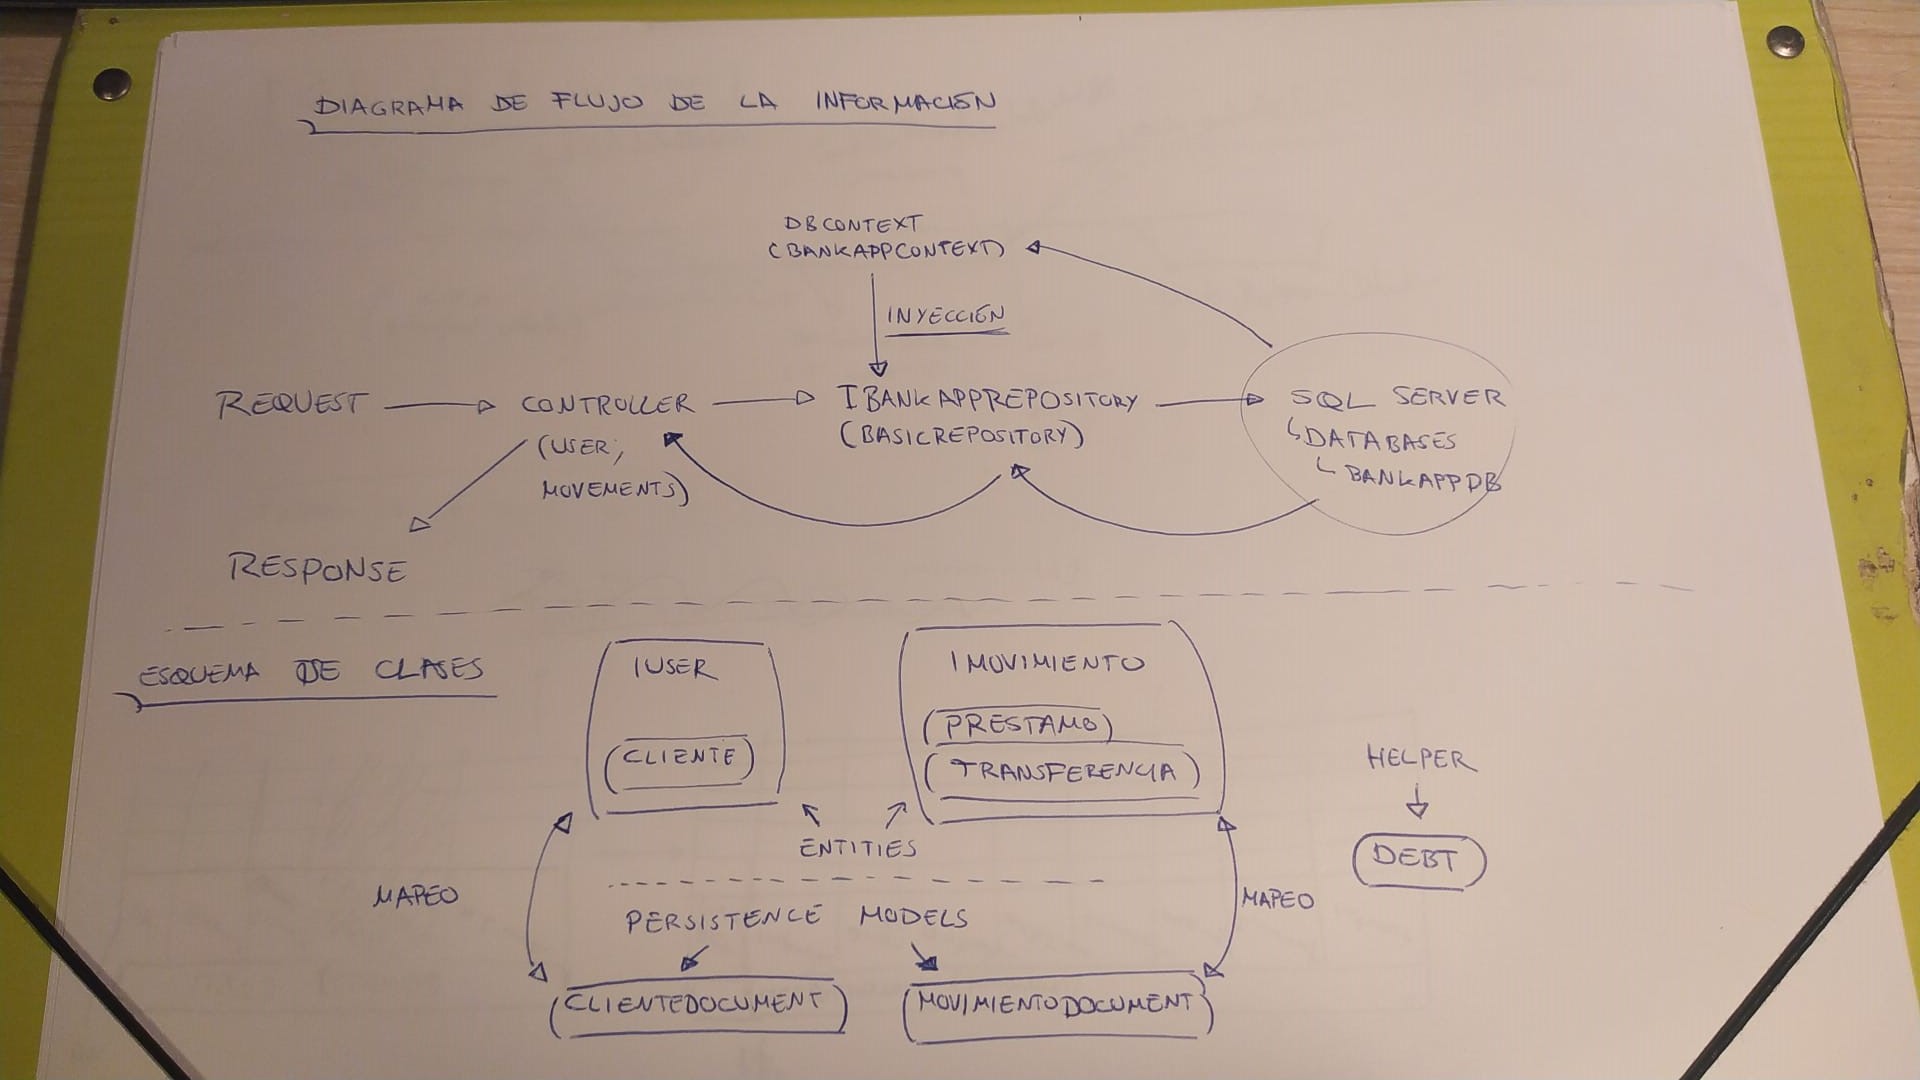 DIAGRAMA DE FLUJO DE LA INFORMACIÓN
DBCONTEXT
(BANKAPPCONTEXT)
INYECCIÓN
REQUEST
CONTROLLER
(USER,
MOVEMENTS)
IBANKAPPREPOSITORY
(BASICREPOSITORY)
SQL SERVER
DATABASES
BANKAPPDB
RESPONSE
ESQUEMA DE CLASES
IUSER
CLIENTE
IMOVIMIENTO
PRESTAMO
TRANSFERENCIA
HELPER
DEBT
ENTITIES
MAPEO
MAPEO
PERSISTENCE MODELS
CLIENTEDOCUMENT
MOVIMIENTODOCUMENT